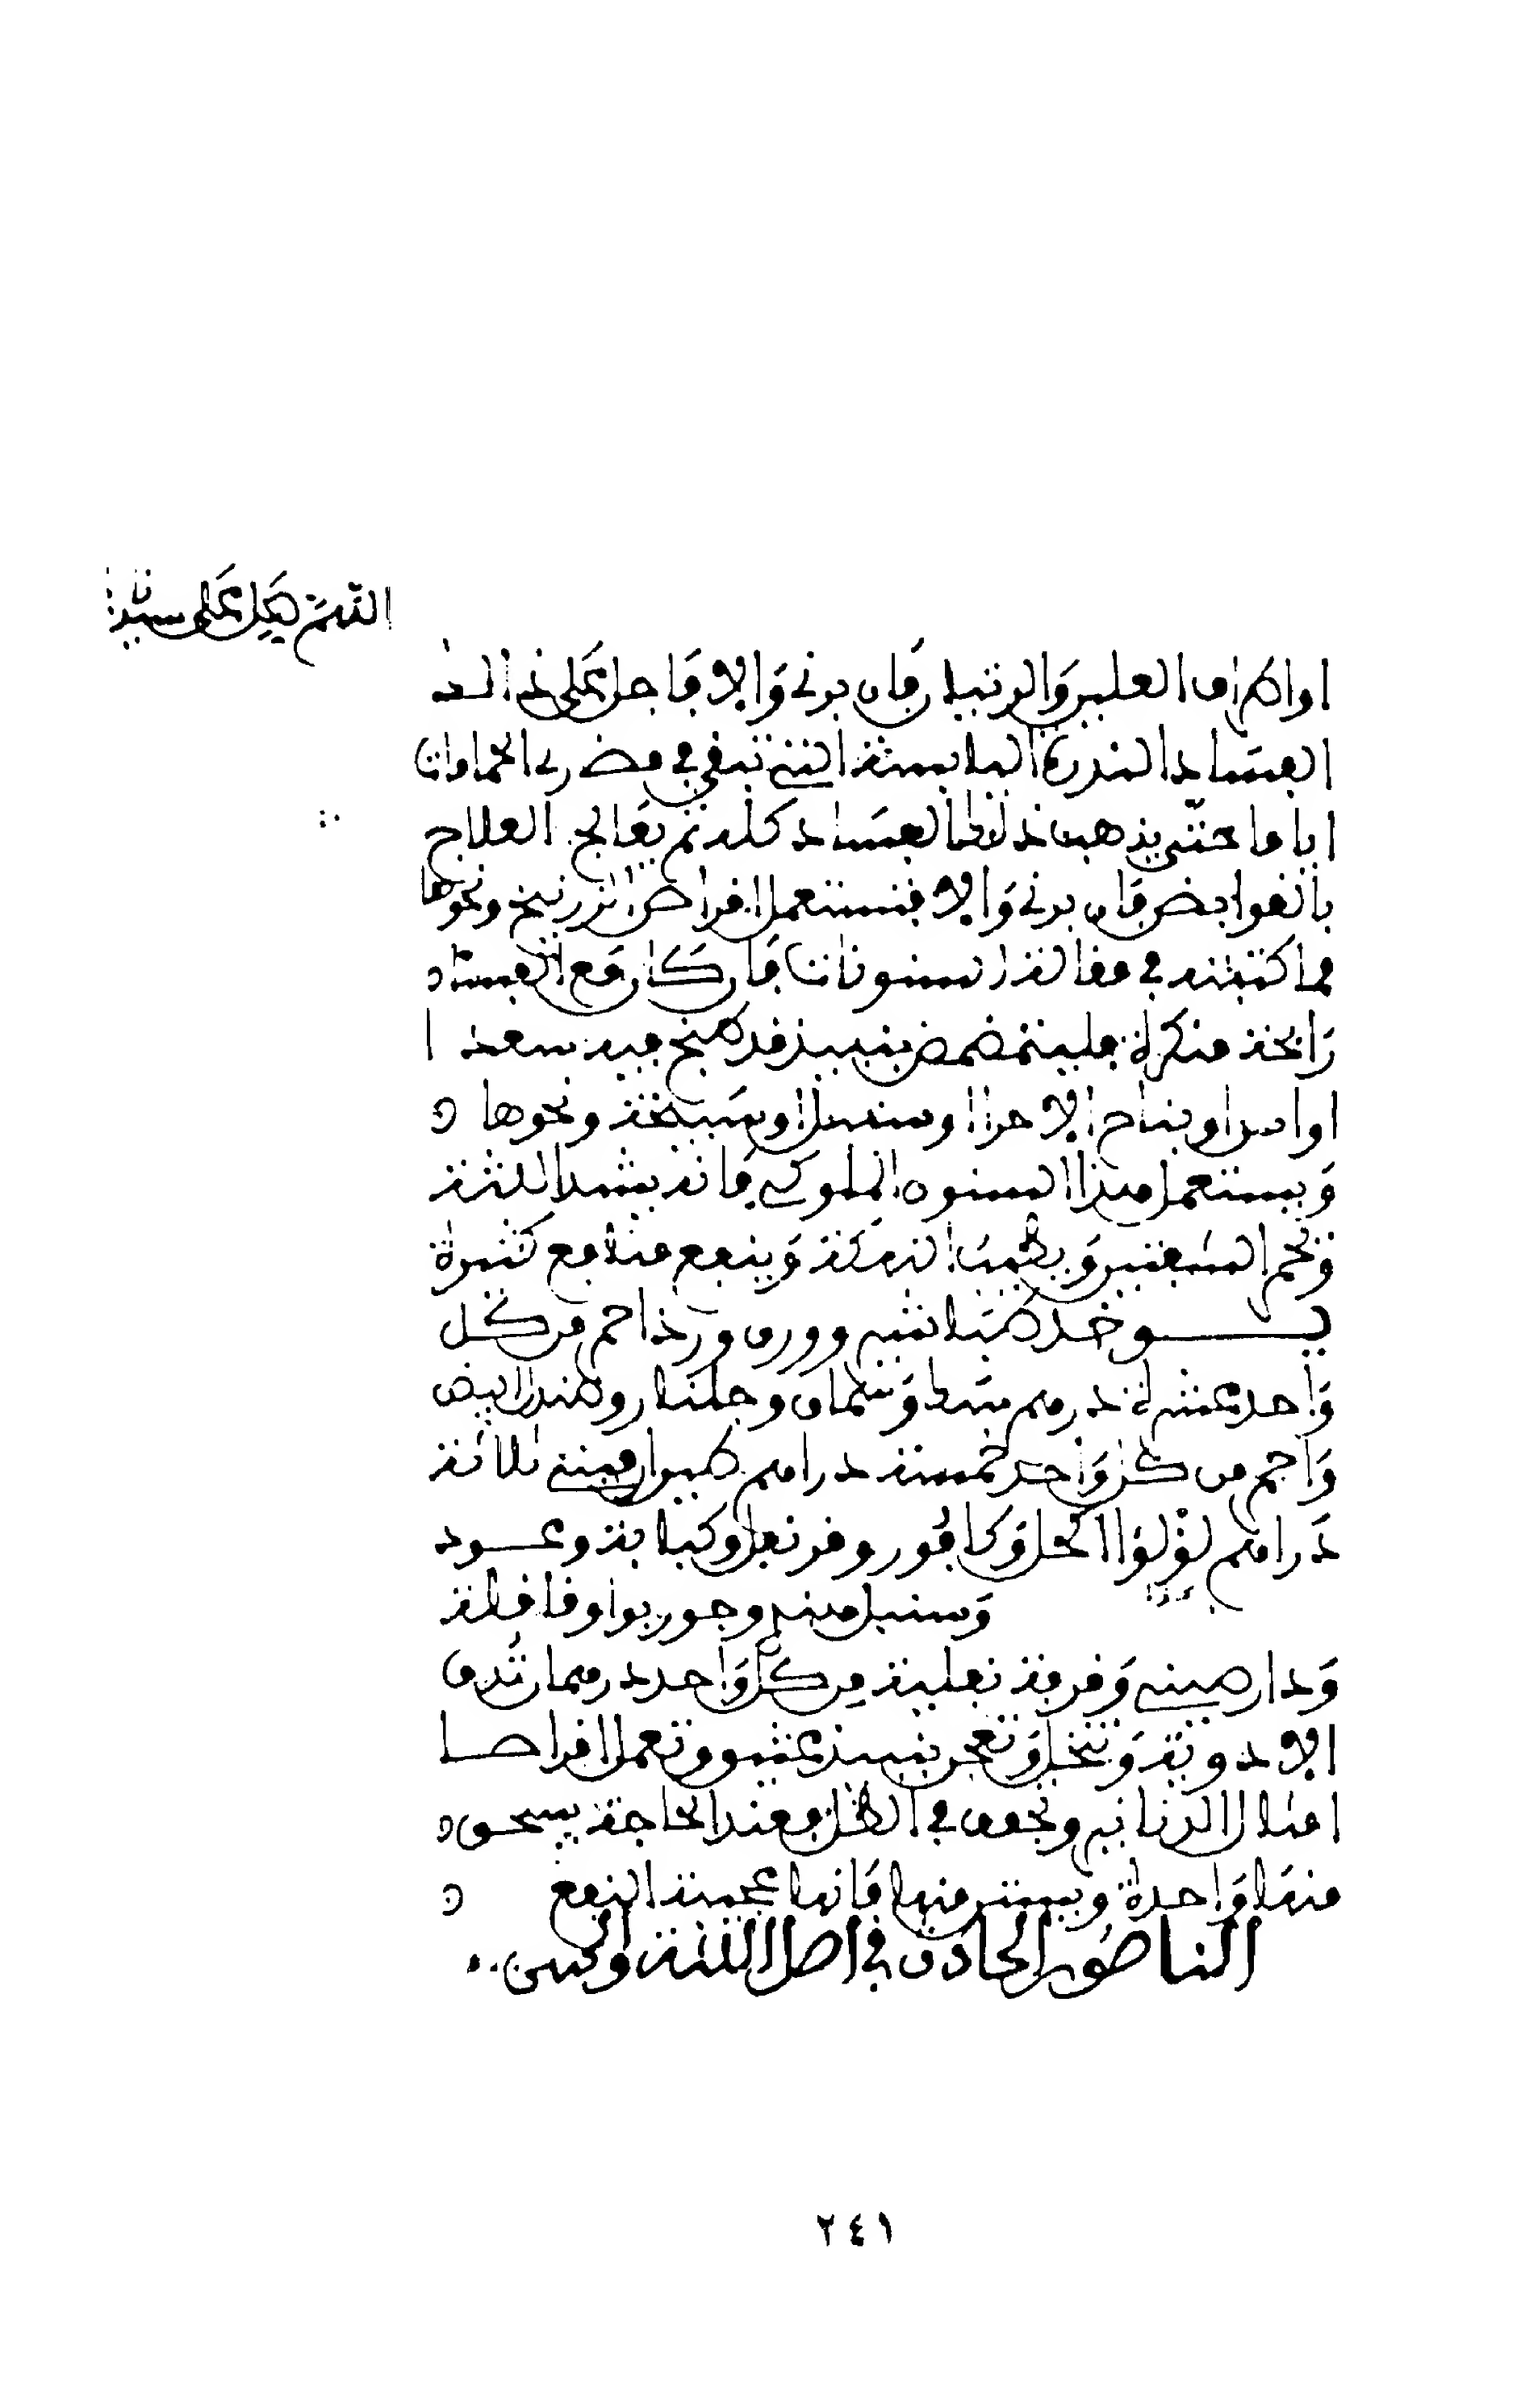 اللهم صل على سيدنا
او اطراف العليق والرتيلا فان برئ والا فاحمل على ذلك
الفساد الندرة اليابسة التي تبقى في الحمامات
اياما حتى يذهب ذلك الفساد كله ثم يعالج العلاج
بالقوابض فان برئ والا فتستعمل اقراص الزرنيخ ونحوها
مما كتبته في مقالة السنونات فان كان مع الفساد
رائحة منكرة فليتمضمض بنبيذ قد طبخ فيه سعد
او اس او بناح الاحرا او سنبل او شيبة ونحوها
ويستعمل هذا السنون الملوكي فانه يشد اللثة
ويحمر الشفتين ويطيب النكهة وينفع منافع كثيرة
يوخذ طباشير وورق ورد احمر من كل
واحد عشرة درهم شب وسماق وجلنار وصندل ابيض
واحمر من كل واحد خمسة دراهم طين ارميني ثلاثة
دراهم لؤلؤ الحل وكافور وقرنفل وكبابة وعود
وسنبل هندي وجوزبوا وقاقلة
ودار صيني وقرفة من كل واحد درهمان تدق
الادوية وتنخل وتعجن بنبيذ عتيق وتعمل اقراصا
امثال الدنانير وتجفف في الظل وعند الحاجة يسحق
منها واحدة ويستن منها فانها عجيبة النفع
الناصور الحادث في اصل اللثة والسن
٢٤١